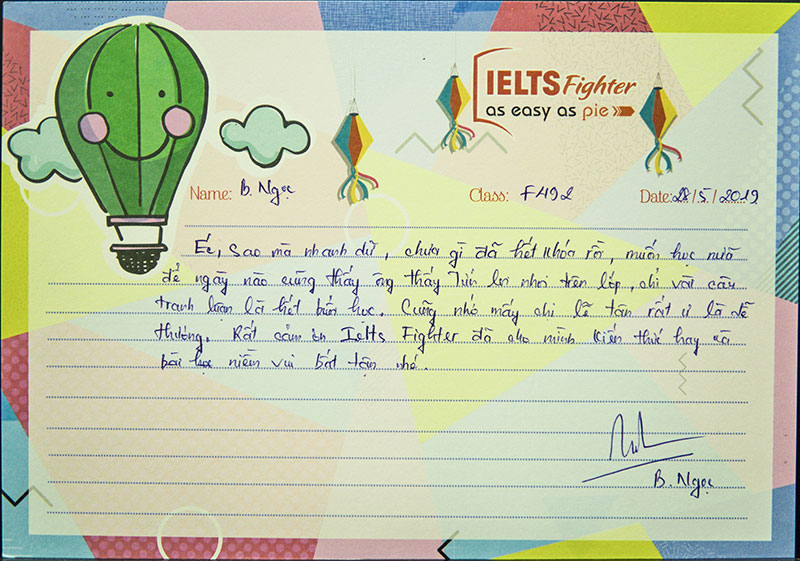 IELTS Fighter
as easy as pie
Name: B. Ngọc Class: F492 Date: 28/5/2019
Ếi, sao mà nhanh dữ, chưa gì đã hết khóa rồi, muốn học nữa
để ngày nào cũng thấy ông thầy Tiến lơ nhơ trên lớp, chỉ vài câu
tranh luận là hết buổi học. Cũng nhớ mấy chị lễ tân rất ư là dễ
thương. Rất cảm ơn Ielts Fighter đã cho mình kiến thức hay và
bài học niềm vui bất tận nhé.
B. Ngọc